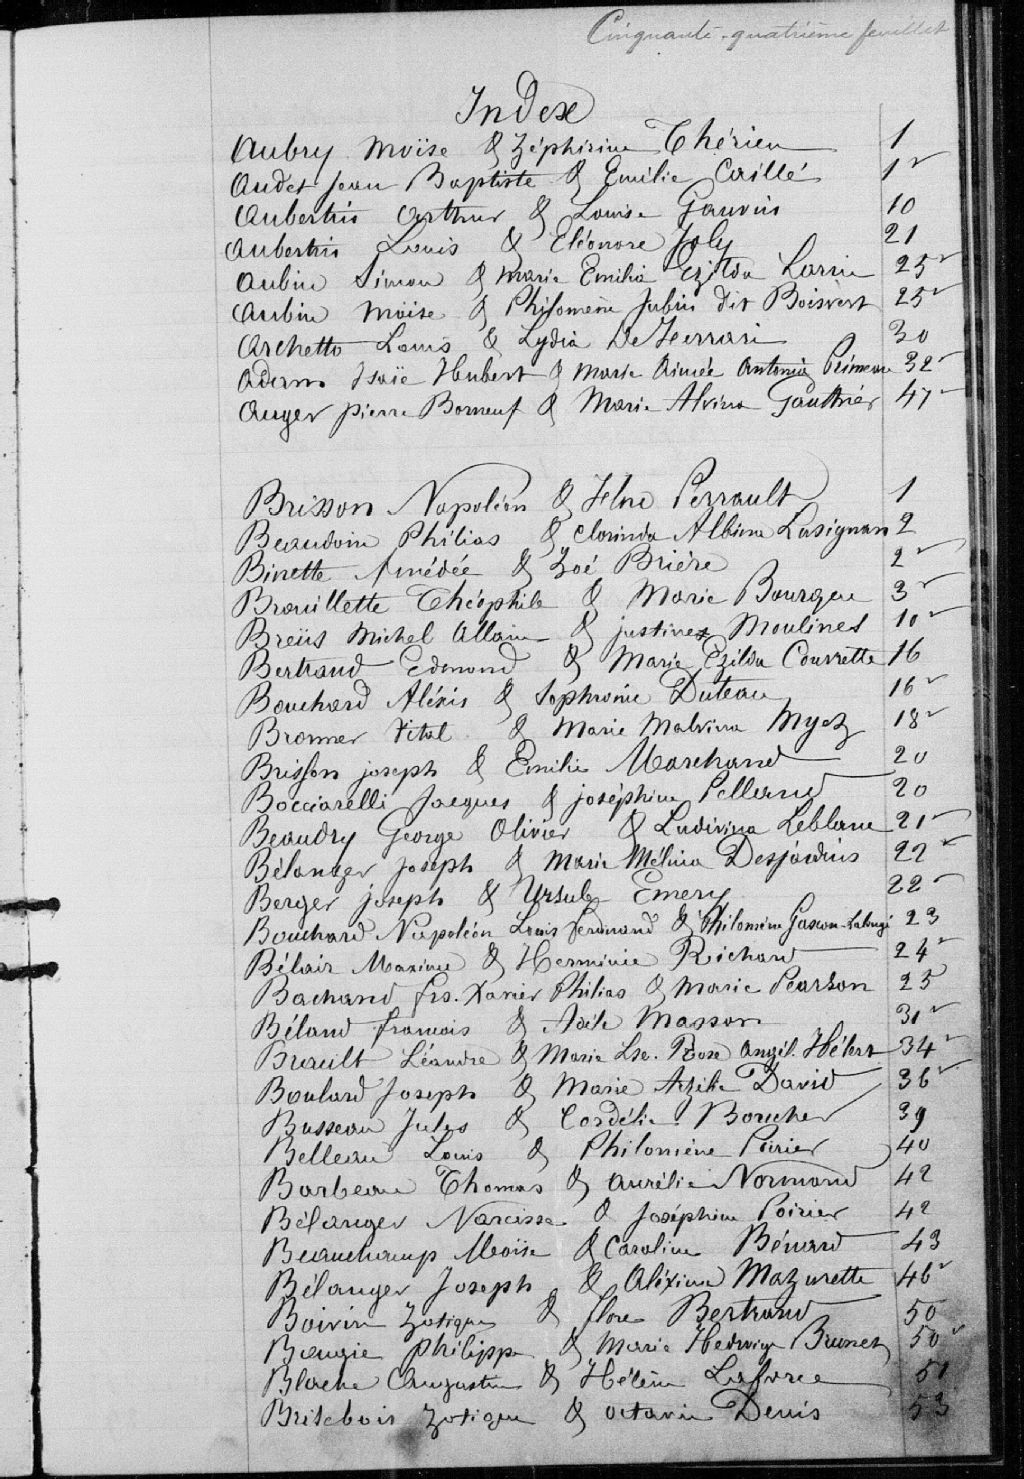 Cinquante-quatrième feuillet
Index
Aubry Moïse & Zéphirine Thérien 1
Audet Jean Baptiste & Emilie Caillé 1v
Aubertin Arthur & Louise Gauvin 10
Aubertin Louis & Eléonore Joly 21
Aubin Simon & Marie Emilia Ezilda Larin 25v
Aubin Moïse & Philomène Jubin dit Boisvert 25v
Archetto Louis & Lydia De Ferrari 30
Adam Isaïe Hubert & Marie Aimée Antonia Primeau 32v
Auger Pierre Borneuf & Marie Alvina Gauthier 47v
Brisson Napoléon & Perrault 1
Beaudoin Philias & Clorinda Albina Lusignan 2
Binette Amédée & Zoé Brière 2v
Brouillette Théophile & Marie Bourgeu 3v
Breüs Michel Allain & Justine Moulines 10v
Bertrand Edmond & Marie Ezilda Courrette 16
Bouchard Aléxis & Sophronie Duteau 16v
Bronner Vital & Marie Malvina Myez 18v
Brisson Joseph & Emilie Marchand 20
Bocciarelli Jacques & Joséphine Pelland 20
Beaudry George Olivier & Ludivina Leblanc 21v
Bélanger Joseph & Marie Mélina Desjardins 22v
Berger Joseph & Ursule Emery 22v
Bouchard Napoléon Louis Ferdinand & Philomène Gascon-Lalongé 23
Bélair Maxime & Herminie Richard 24v
Bachand Frs. Xavier Philias & Marie Pearson 25
Béland François & Adèle Masson 31v
Breault Léandre & Marie Lse. Rose Angél. Hébert 34v
Boulard Joseph & Marie Azélie David 36v
Busseau Jules & Cordélie Boucher 39
Belleau Louis & Philomène Poirier 40
Barbeau Thomas & Aurélie Normand 42
Bélanger Narcisse & Joséphine Poirier 42
Beauchamp Moïse & Caroline Bénard 43
Bélanger Joseph & Aléxina Mazurette 46v
Boivin Zotique & Flore Bertrand 50
Bougie Philippe & Marie Hedwige Brunet 50v
Blache Augustin & Hélène 51
Brisebois Zotique & Octavie Denis 53